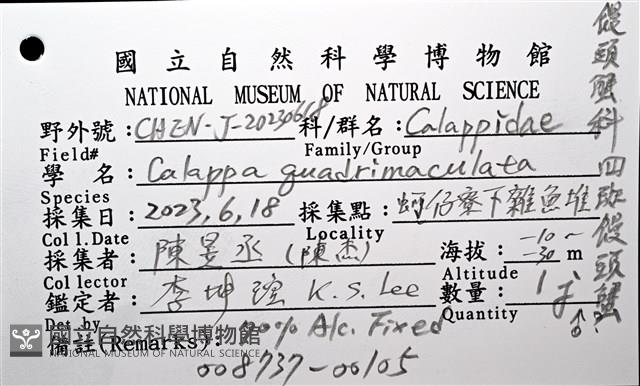 國立自然科學博物館
NATIONAL MUSEUM OF NATURAL SCIENCE
野外號:CHEN-J-20230618 科/群名:Calappidae
Field# Family/Group
學名:Calappa quadrimaculata
Species
採集日:2023,6,18 採集點:蚵仔寮下雜魚堆
Col l.Date Locality
採集者:陳昱丞(陳杰) 海拔:-10~-30 m
Col lector Altitude
鑑定者:李坤瑄 K.S. Lee 數量:1
Det.by Quantity
備註(Remarks): % Alc. Fixed
008737-00105
饅頭蟹科四斑饅頭蟹
國立自然科學博物館
NATIONAL MUSEUM OF NATURAL SCIENCE